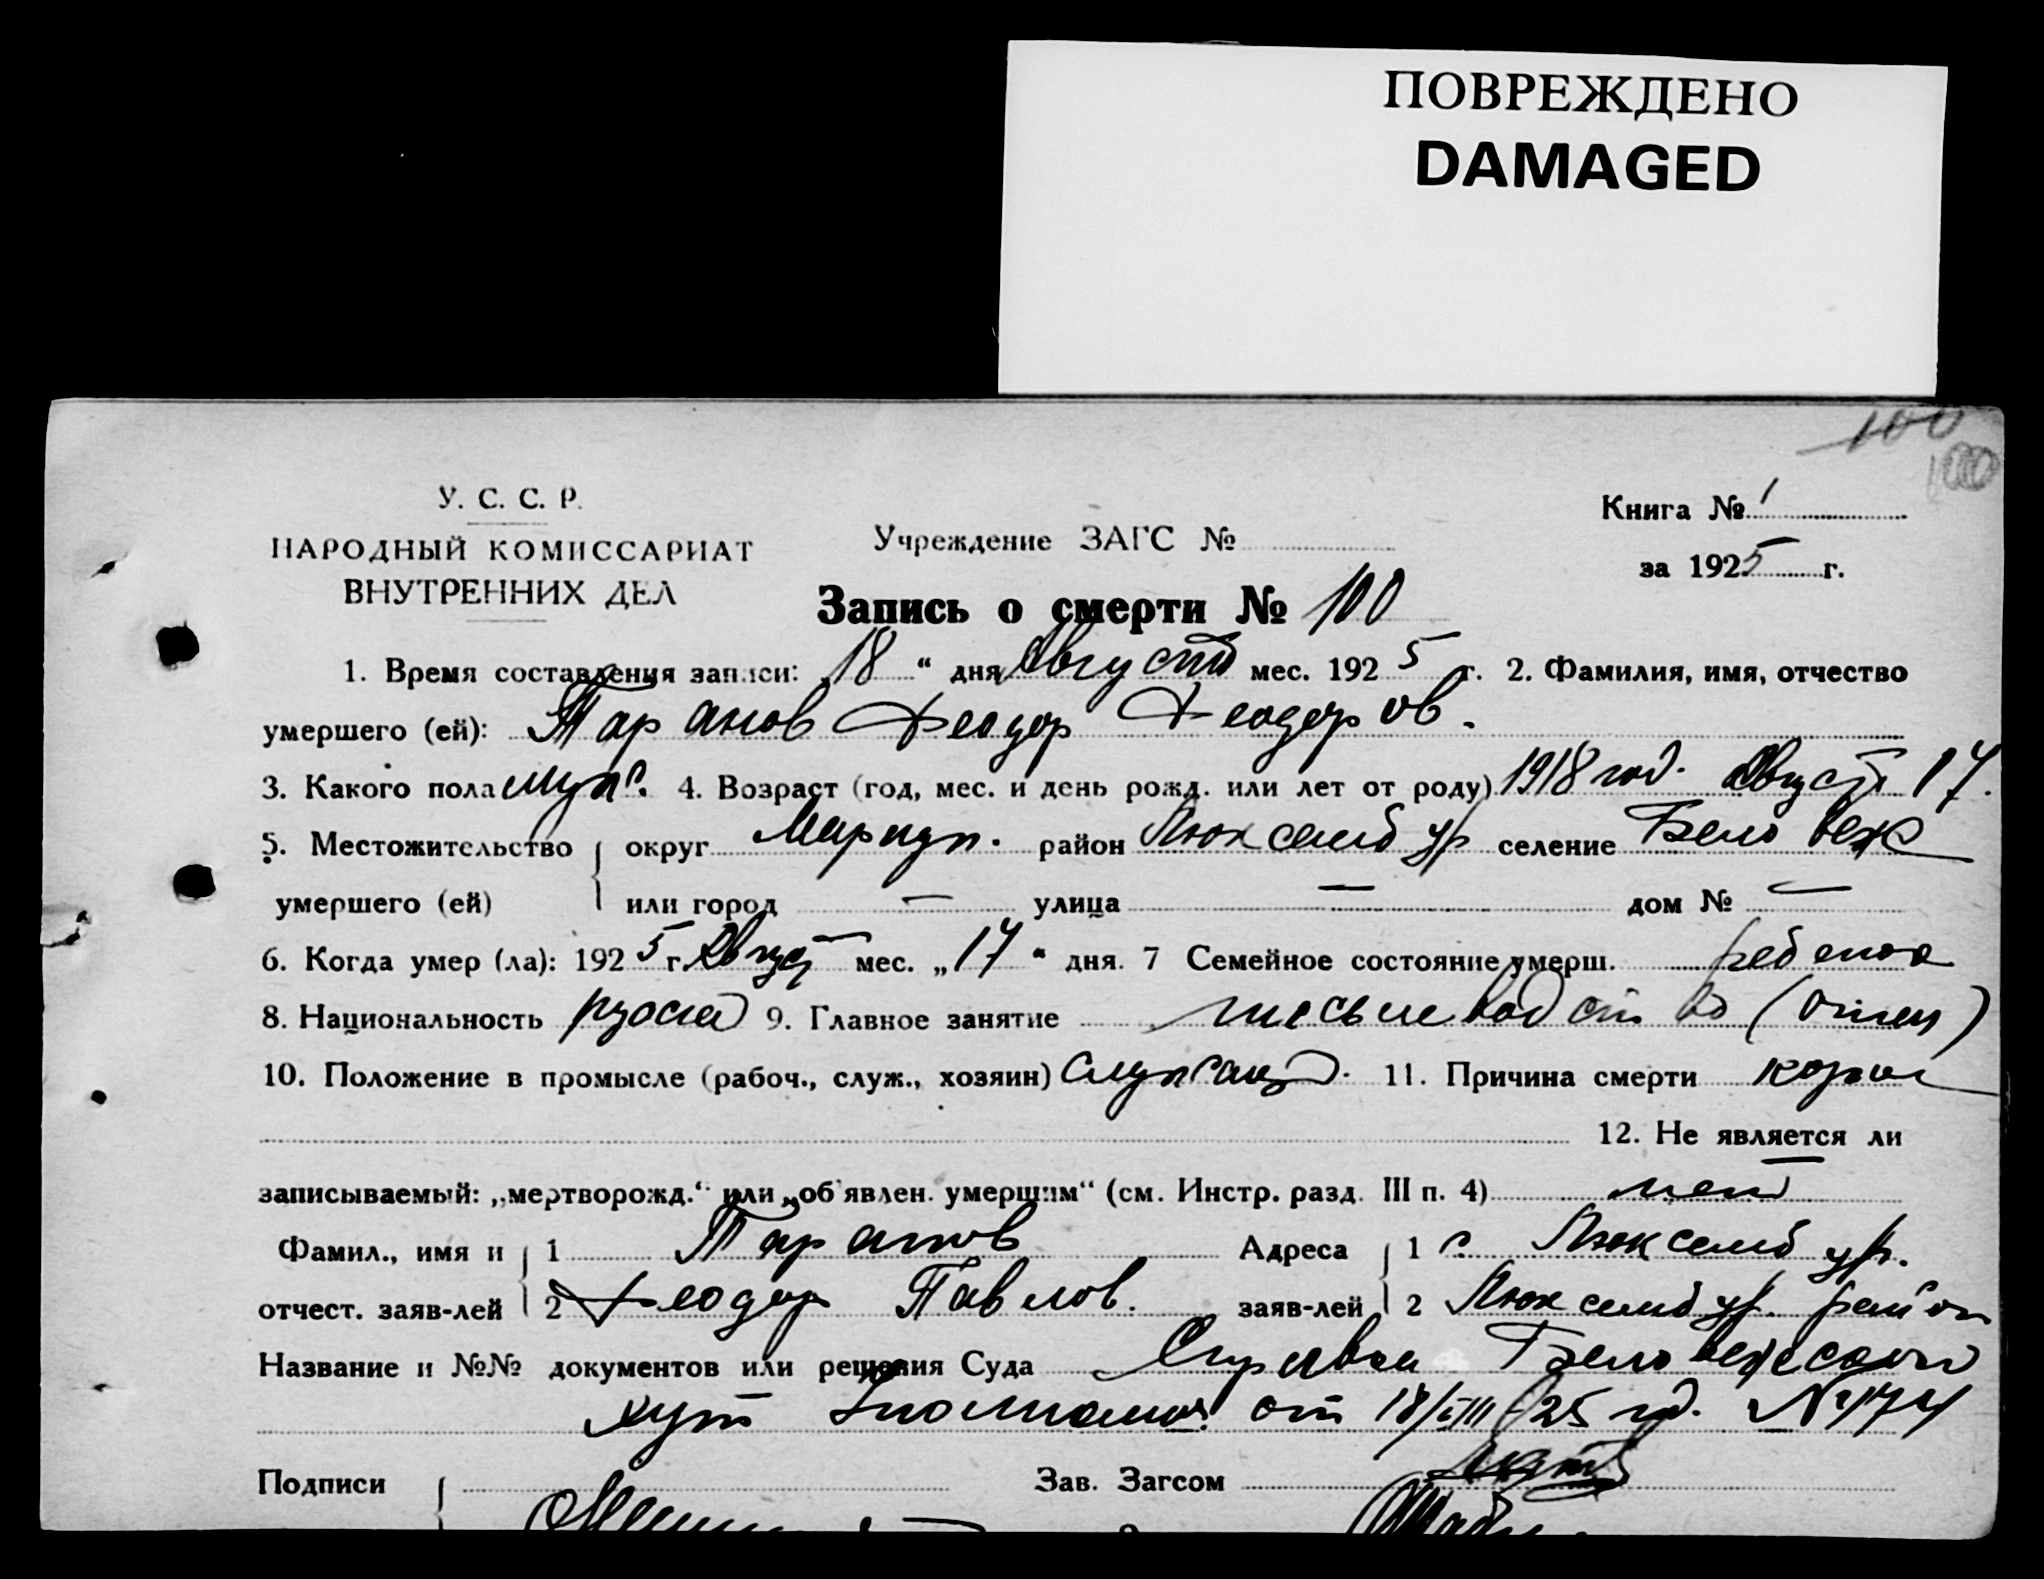 ПОВРЕЖДЕНО
DAMAGED
100
100
У. С. С. Р.
НАРОДНЫЙ КОМИССАРИАТ
ВНУТРЕННИХ ДЕЛ
Учреждение ЗАГС №
Книга № 1
за 1925 г.
Запись о смерти № 100
1. Время составления записи: „18“ дня Август мес. 1925 г. 2. Фамилия, имя, отчество
умершего (ей): Таранов Феодор Феодоров.
3. Какого пола муж. 4. Возраст (год, мес. и день рожд. или лет от роду) 1918 год. Август 17.
5. Местожительство округ Мариуп. район Люксембур селение Беловеж
умершего (ей) или город — улица — дом № —
6. Когда умер (ла): 1925 г. Август мес. „17“ дня. 7 Семейное состояние умерш. ребенок
8. Национальность 9. Главное занятие (отец)
10. Положение в промысле (рабоч., служ., хозяин) 11. Причина смерти
12. Не является ли
записываемый: „мертворожд.“ или „об'явлен. умершим“ (см. Инстр. разд. III п. 4) нет
Фамил., имя и 1 Таранов Адреса 1 с. Люксембур.
отчест. заяв-лей 2 Феодор Павлов. заяв-лей 2 Люксембур. район
Название и №№ документов или решения Суда Справка Беловежского
хут от 18/VIII-25 год. № 174
Подписи Зав. Загсом